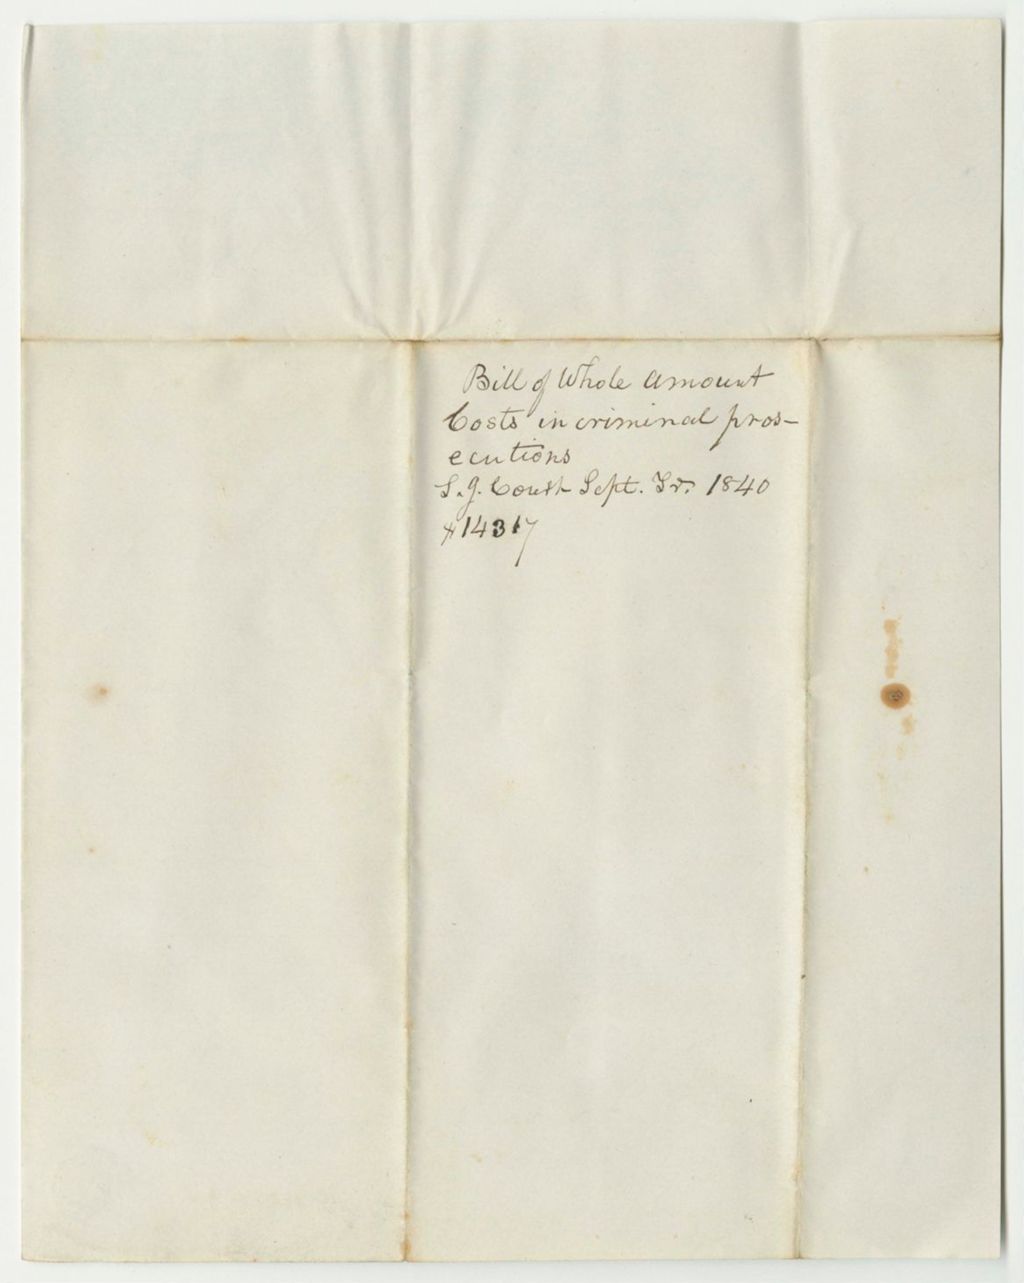 Bill of Whole Amount
Costs in criminal pros-
ecutions
S. J. Court Sept. Tr. 1840
$143 17